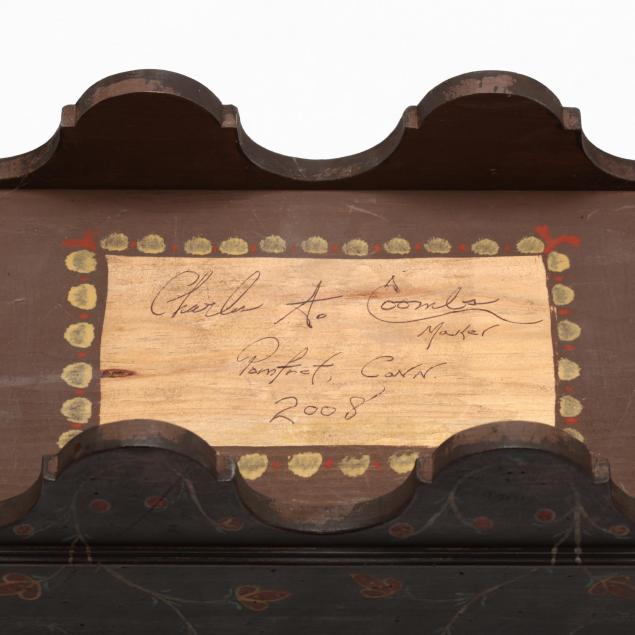 Charles A. Coombs
Maker
Pomfret, Conn.
2008